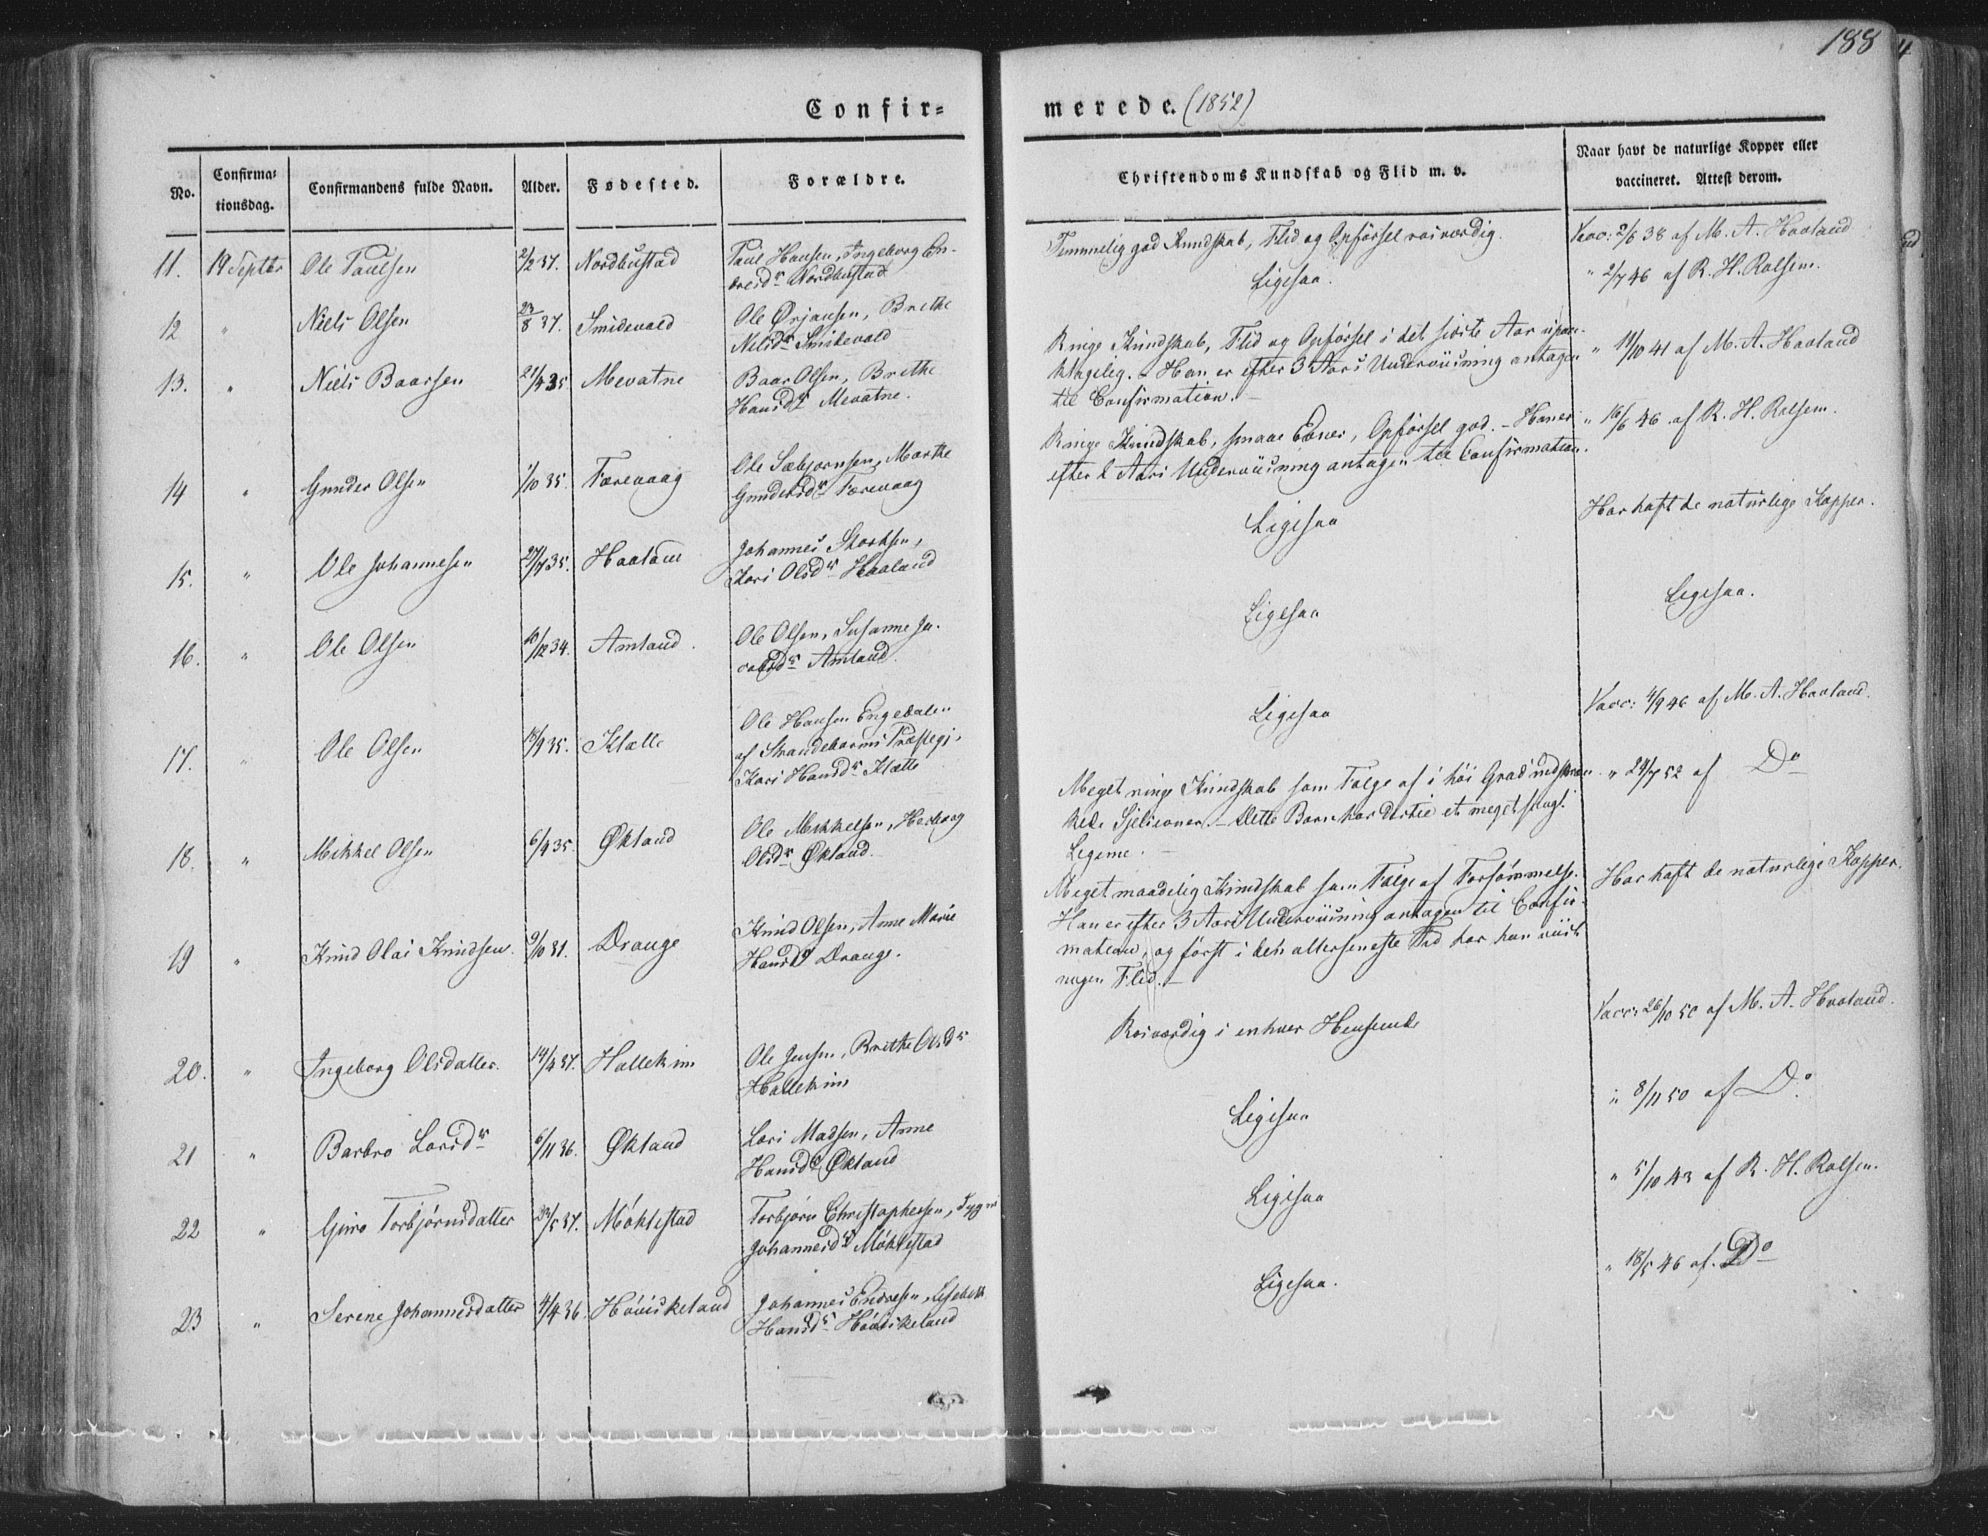 188
Confir=
merede. (1852)
No.
Confirma=
tionsdag.
Confirmandens fulde Navn.
Alder.
Fødested.
Forældre.
Christendoms Kundskab og Flid m. v.
Naar havt de naturlige Kopper eller
vaccineret. Attest derom.
11. 19 Septbr Ole Paulsen 2/2 37. Nordhustad
Paul Hansen, Ingeborg En-
dresdr Nordhustad
Temmelig god Kundskab, Flid og Opførsel rosværdig.
Vacc: 2/6 38 af M. A. Haaland
12 " Niels Olsen 23/8 37. Smidevold
Ole Ørjansen, Brithe
Nilsdr Smidevold
Ligesaa.
" 2/7 46 af R. H. Rolsem.
13. " Niels Baarsen 21/4 35 Mevatne
Baar Olsen, Brithe
Hansdr Mevatne.
Ringe Kundskab, Flid og Opførsel i det sidste Aar upaa-
klagelig. - Han er efter 3 Aars Underviisning antagen
til Confirmation. -
" 11/10 41 af M. A. Haaland
14 " Gunder Olsen 1/10 35. Færevaag
Ole Sæbjørnsen, Marthe
Gundersdr Færevaag
Ringe Kundskab, smaae Evner, Opførsel god. - Han er
efter 2 Aars Underviisning antagen til Confirmation.
" 16/6 46 af R. H. Rolsem.
15. " Ole Johannesen 27/7 35. Haaland
Johannes Storksen,
Kari Olsdr Haaland
Ligesaa
Har haft de naturlige Kopper.
16. " Ole Olsen 10/12 34. Amland.
Ole Olsen, Susanne Ja-
cobsdr Amland.
Ligesaa
Ligesaa.
17. " Ole Olsen 18/9 35. Klætte
Ole Hansen Engedalen
af Strandebarms Præstegj.
Kari Hansdr Klætte
Ligesaa
Vacc: 4/9 46 af M. A. Haaland.
18. " Mikkel Olsen 6/4 35. Økland
Ole Mikkelsen, Hedevig
Olsdr Økland.
Meget ringe Kundskab som Følge af i høi Grad indskræn-
kede Sjelsevner. - Dette Barn har Derhos et meget svagt
Legeme. -
" 24/7 52 af Do
19 " Knud Olai Knudsen. 9/10 31. Drange
Knud Olsen, Anne Marie
Hansdr Drange.
Meget maadelig Kundskab som Følge af Forsømmelse.
Han er efter 3 Aars Underviisning antagen til Confir-
mation, og først i den allerseneste Tid har han viist
nogen Flid. -
Har haft de naturlige Kopper.
20. " Ingeborg Olsdatter. 14/4 37. Hallekim
Ole Jensen, Brithe Olsdr
Hallekim
Rosværdig i enhver Henseende
Vacc: 26/10 50 af M. A. Haaland.
21 " Barbro Larsdr 6/11 36. Økland
Lars Madsen, Anne
Hansdr Økland
Ligesaa
" 8/11 50 af Do.
22 " Guro Torbjørnsdatter 23/5 37. Møklestad
Torbjørn Christophersen, Sygni
Johannesdr Møklestad
Ligesaa
" 5/10 43 af R. H. Rolsem.
23 " Serene Johannesdatter 4/4 36. Høviskeland
Johannes Endresen, Lisebeth
Hansdr Høviskeland
Ligesaa.
" 18/5 46 af Do